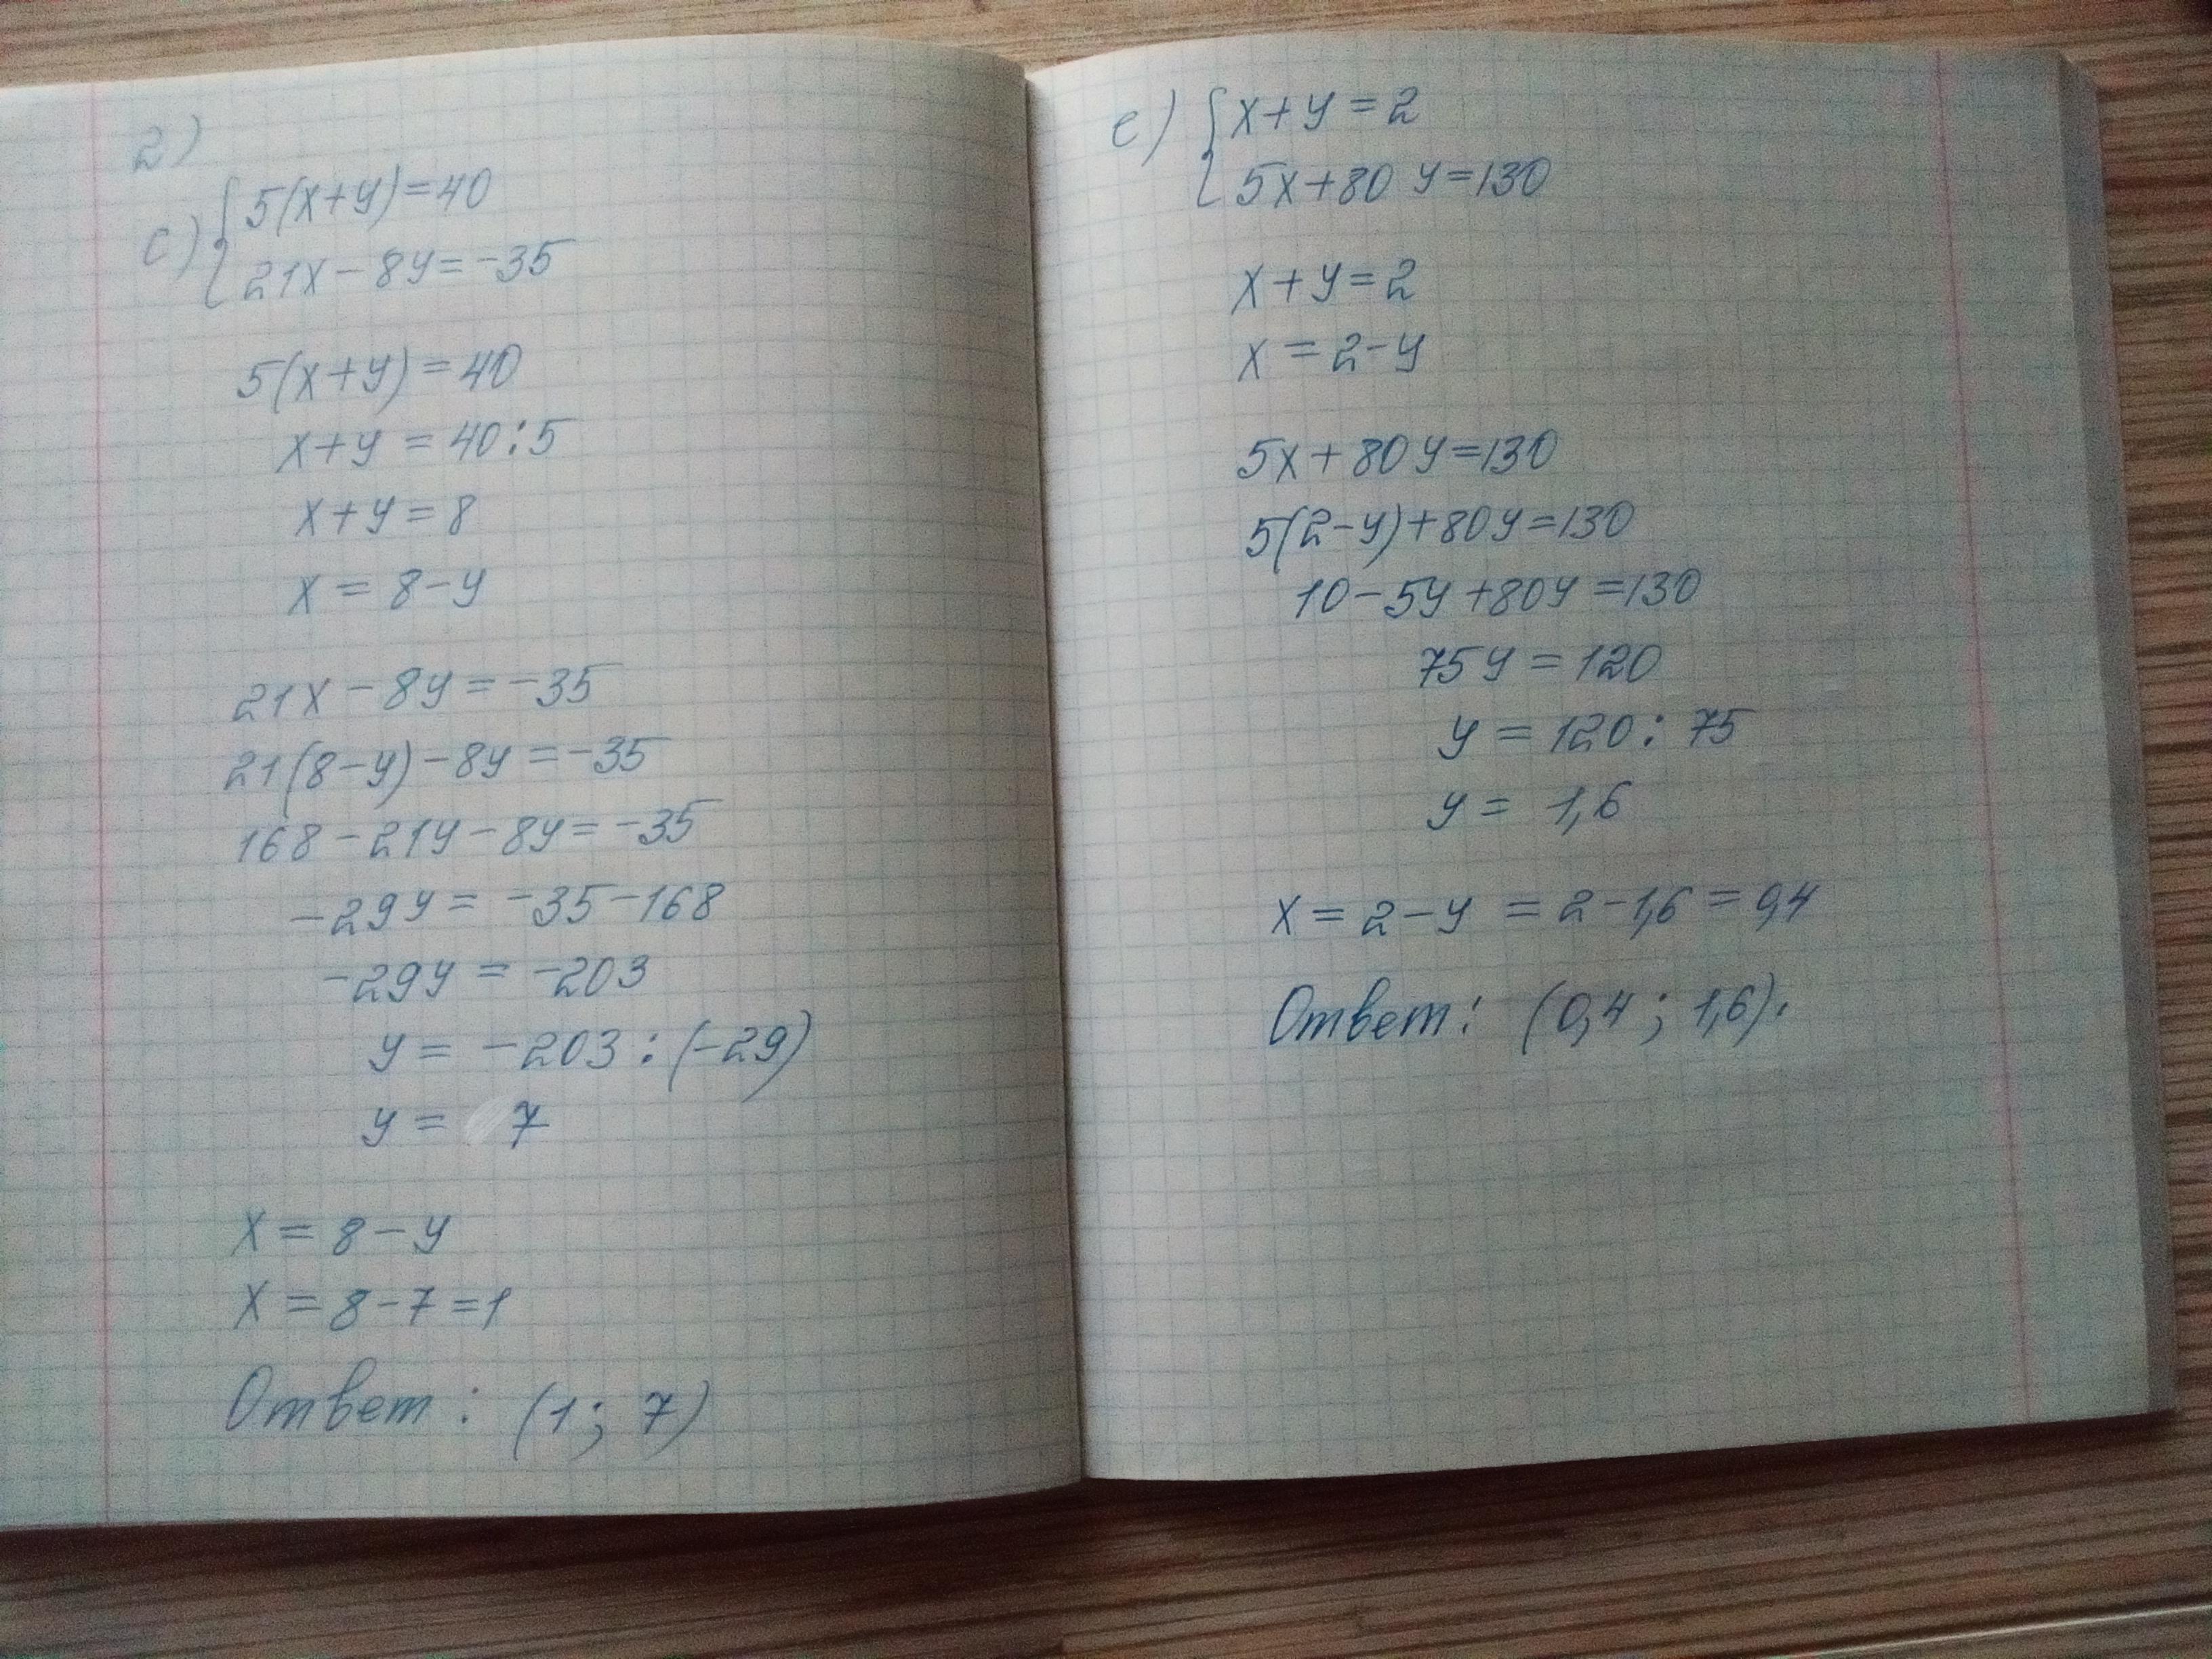 2)
c) 5(x+y)=40
21x-8y=-35
5(x+y)=40
x+y=40:5
x+y=8
x=8-y
21x-8y=-35
21(8-y)-8y=-35
168-21y-8y=-35
-29y=-35-168
-29y=-203
y=-203:(-29)
y= 7
x=8-y
x=8-7=1
Ответ: (1; 7)
e) x+y=2
5x+80y=130
x+y=2
x=2-y
5x+80y=130
5(2-y)+80y=130
10-5y+80y=130
75y=120
y=120:75
y=1,6
x=2-y=2-1,6=0,4
Ответ: (0,4; 1,6).